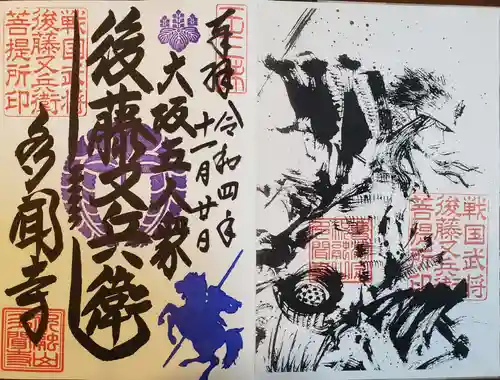 奉拝 令和四年
十一月廿日
大坂五人衆
後藤又兵衛
多聞寺
戦国武将
後藤又兵衛
菩提所印
戦国武将
後藤又兵衛
菩提所印